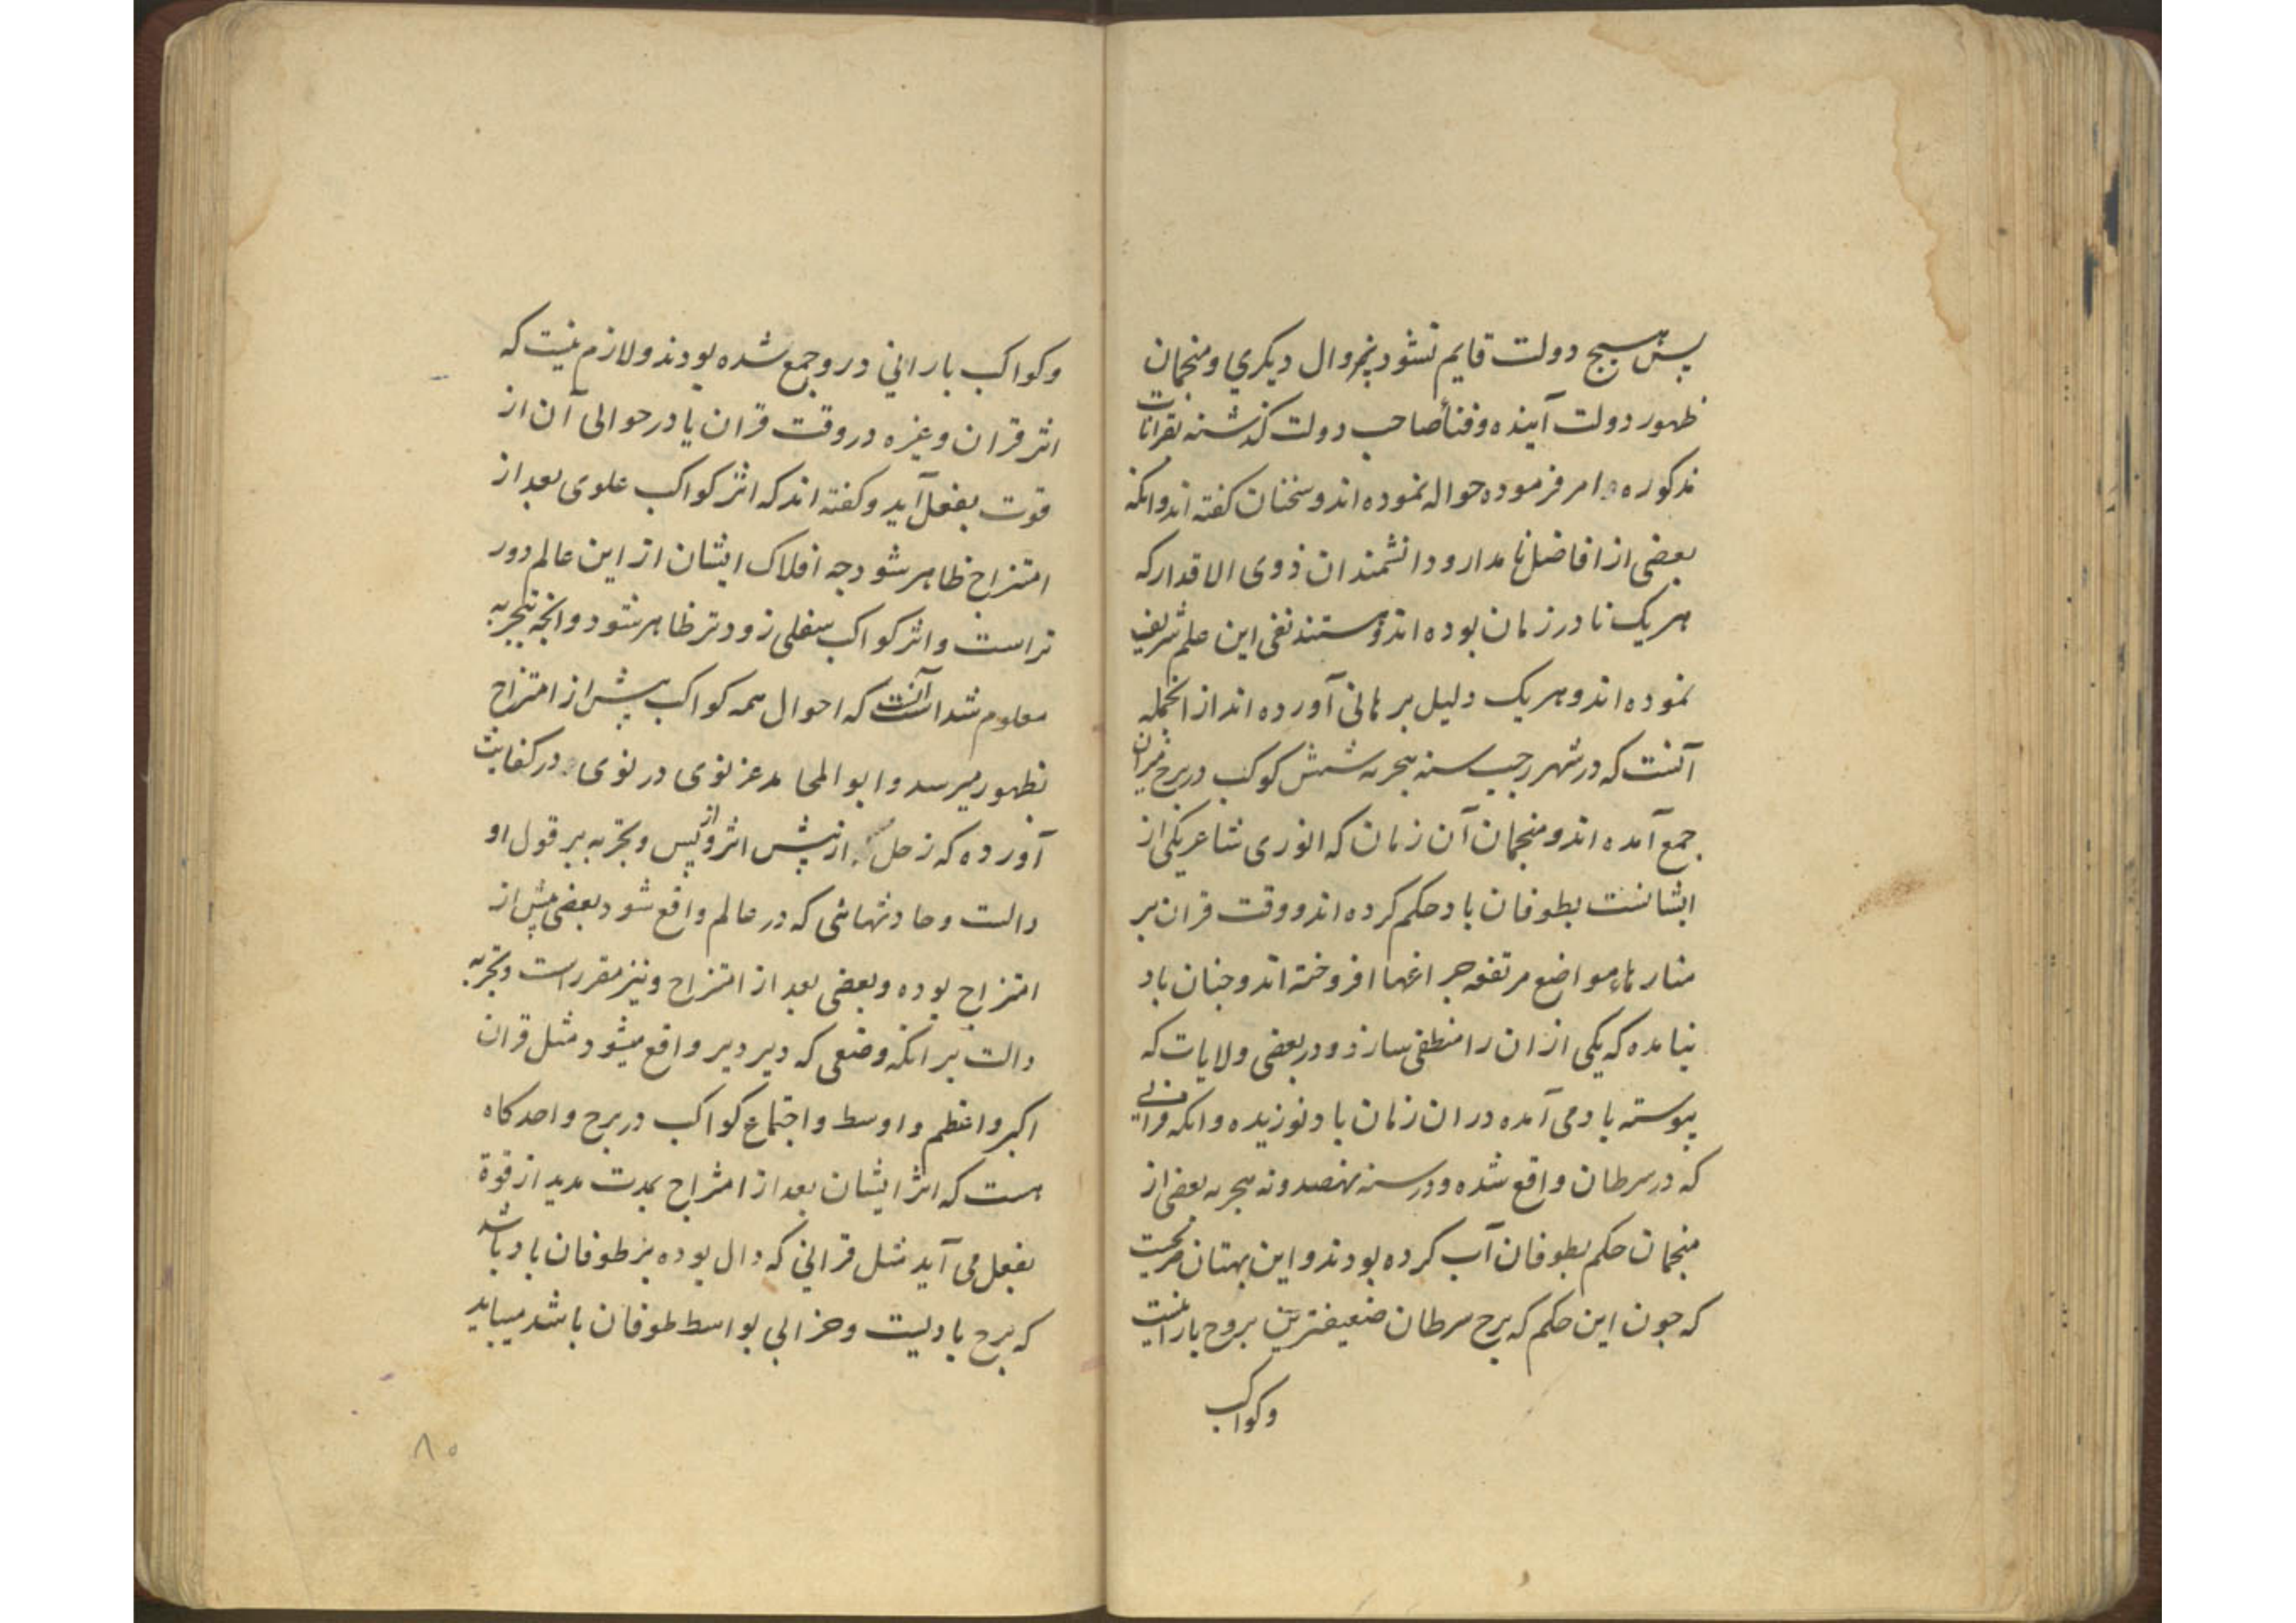 پس هیچ دولت قایم نشود بجز وال دیکری و منجمان
ظهور دولت آینده و فنأ صاحب دولت کذشته بقرانات
مذکوره امر فرموده حواله نموده اند و سخنان کفته اند وانکه
بعضی از افاضل نامدار و دانشمندان ذوی الاقدار که
هر یک نادر زمان بوده اند و هستند نفی این علم شریف
نموده اند و هر یک دلیل برهانی آورده اند از انجمله
آنست که در شهر رجب سنه هجریه شش کوکب در برج میزان
جمع آمده اند و منجمان آن زمان که انوری شاعر یکی از
ایشانست بطوفان باد حکم کرده اند و وقت قران بر
منارهاء مواضع مرتفعه چراغها افروخته اند و چنان باد
نیامده که یکی از ان را منطفی سازد و در بعضی ولایات که
پیوسته باد می آمده در ان زمان باد نوزیده وانکه قرانی
که در سرطان واقع شده و در سنه نهصد و نه هجریه بعضی از
منجمان حکم بطوفان آب کرده بودند و این بهتان صریحست
که جون این حکم که برج سرطان ضعیفترین بروج بارانیست
وکواکب
وکواکب بارانی در و جمع شده بودند و لازم نیست که
اثر قران وغیره در وقت قران یا در حوالی آن از
قوت بفعل آید و کفته اند که اثر کواکب علوی بعد از
امتزاج ظاهر شود چه افلاک ایشان از این عالم دور
تر است و اثر کواکب سفلی زودتر ظاهر شود و انچه بتجربه
معلوم شد آنست که احوال همه کواکب پیش از امتزاج
بظهور میرسد و ابو المحامد غزنوی در کفایت
آورده که زحل از پیش اثر و از پس و تجربه بر قول او
دالت و حادثهائی که در عالم واقع شود بعضی پیش از
امتزاج بوده و بعضی بعد از امتزاج و نیز مقرر است و تجربه
دالت بر انکه وضعی که دیر دیر واقع میشود مثل قران
اکبر و اعظم و اوسط و اجتماع کواکب در برج واحد کاه
هست که اثر ایشان بعد از امتزاج بمدت مدید از قوة
بفعل می آید مثل قرانی که دال بوده بر طوفان باد باشد
که برج بادیست و خرابی بواسط طوفان باشد میباید
۸۰